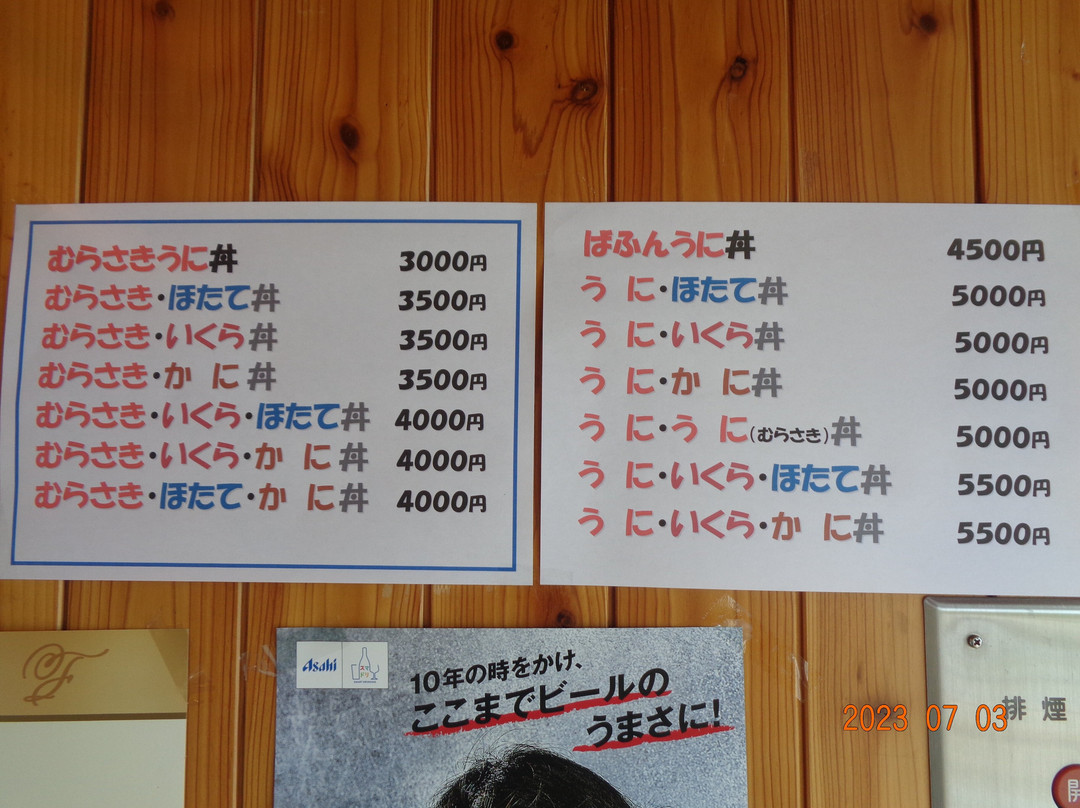 むらさきうに丼 3000円
むらさき・ほたて丼 3500円
むらさき・いくら丼 3500円
むらさき・かに丼 3500円
むらさき・いくら・ほたて丼 4000円
むらさき・いくら・かに丼 4000円
むらさき・ほたて・かに丼 4000円
ばふんうに丼 4500円
うに・ほたて丼 5000円
うに・いくら丼 5000円
うに・かに丼 5000円
うに・うに(むらさき)丼 5000円
うに・いくら・ほたて丼 5500円
うに・いくら・かに丼 5500円
Asahi
スマドリ
10年の時をかけ、
ここまでビールの
うまさに!
排煙
開
2023 07 03